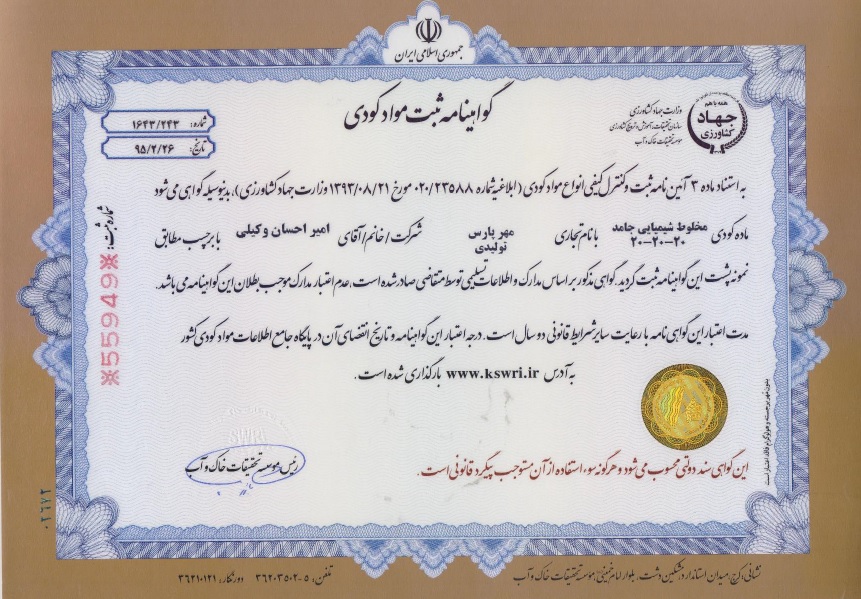 جمهوری اسلامی ایران
همه با هم
جهاد
کشاورزی
وزارت جهاد کشاورزی
سازمان تحقیقات، آموزش و ترویج کشاورزی
موسسه تحقیقات خاک و آب
گواهینامه ثبت مواد کودی
شماره: ۱۶۴۳/۲۴۳
تاریخ: ۹۵/۲/۲۶
به استناد ماده ۳ آئین نامه ثبت و کنترل کیفی انواع مواد کودی (ابلاغیه شماره ۰۲۰/۲۳۵۸۸ مورخ ۱۳۹۳/۰۸/۲۱ وزارت جهاد کشاورزی)، بدینوسیله گواهی می شود
ماده کودی مخلوط شیمیایی جامد ۲۰-۲۰-۲۰ با نام تجاری مهر پارس تولیدی شرکت/خانم/آقای امیر احسان وکیلی با برچسب مطابق
نمونه پشت این گواهینامه ثبت گردید. گواهی مذکور بر اساس مدارک و اطلاعات تسلیمی توسط متقاضی صادر شده است، عدم اعتبار مدارک موجب بطلان این گواهینامه می باشد.
مدت اعتبار این گواهی نامه با رعایت سایر شرایط قانونی دو سال است. درجه اعتبار این گواهینامه و تاریخ انقضای آن در پایگاه جامع اطلاعات مواد کودی کشور
به آدرس www.kswri.ir بارگذاری شده است.
شماره ثبت:
※55949※
SWRI
رئیس موسسه تحقیقات خاک و آب
این گواهی سند دولتی محسوب می شود و هرگونه سوء استفاده از آن مستوجب پیگرد قانونی است.
بدون مهر برجسته و هولوگرام فاقد اعتبار است
۰۲۶۷۲
نشانی: کرج، میدان استاندارد، مشکین دشت، بلوار امام خمینی، موسسه تحقیقات خاک و آب
تلفن: ۵-۳۶۲۰۳۵۰۲ دورنگار: ۳۶۲۱۰۱۲۱